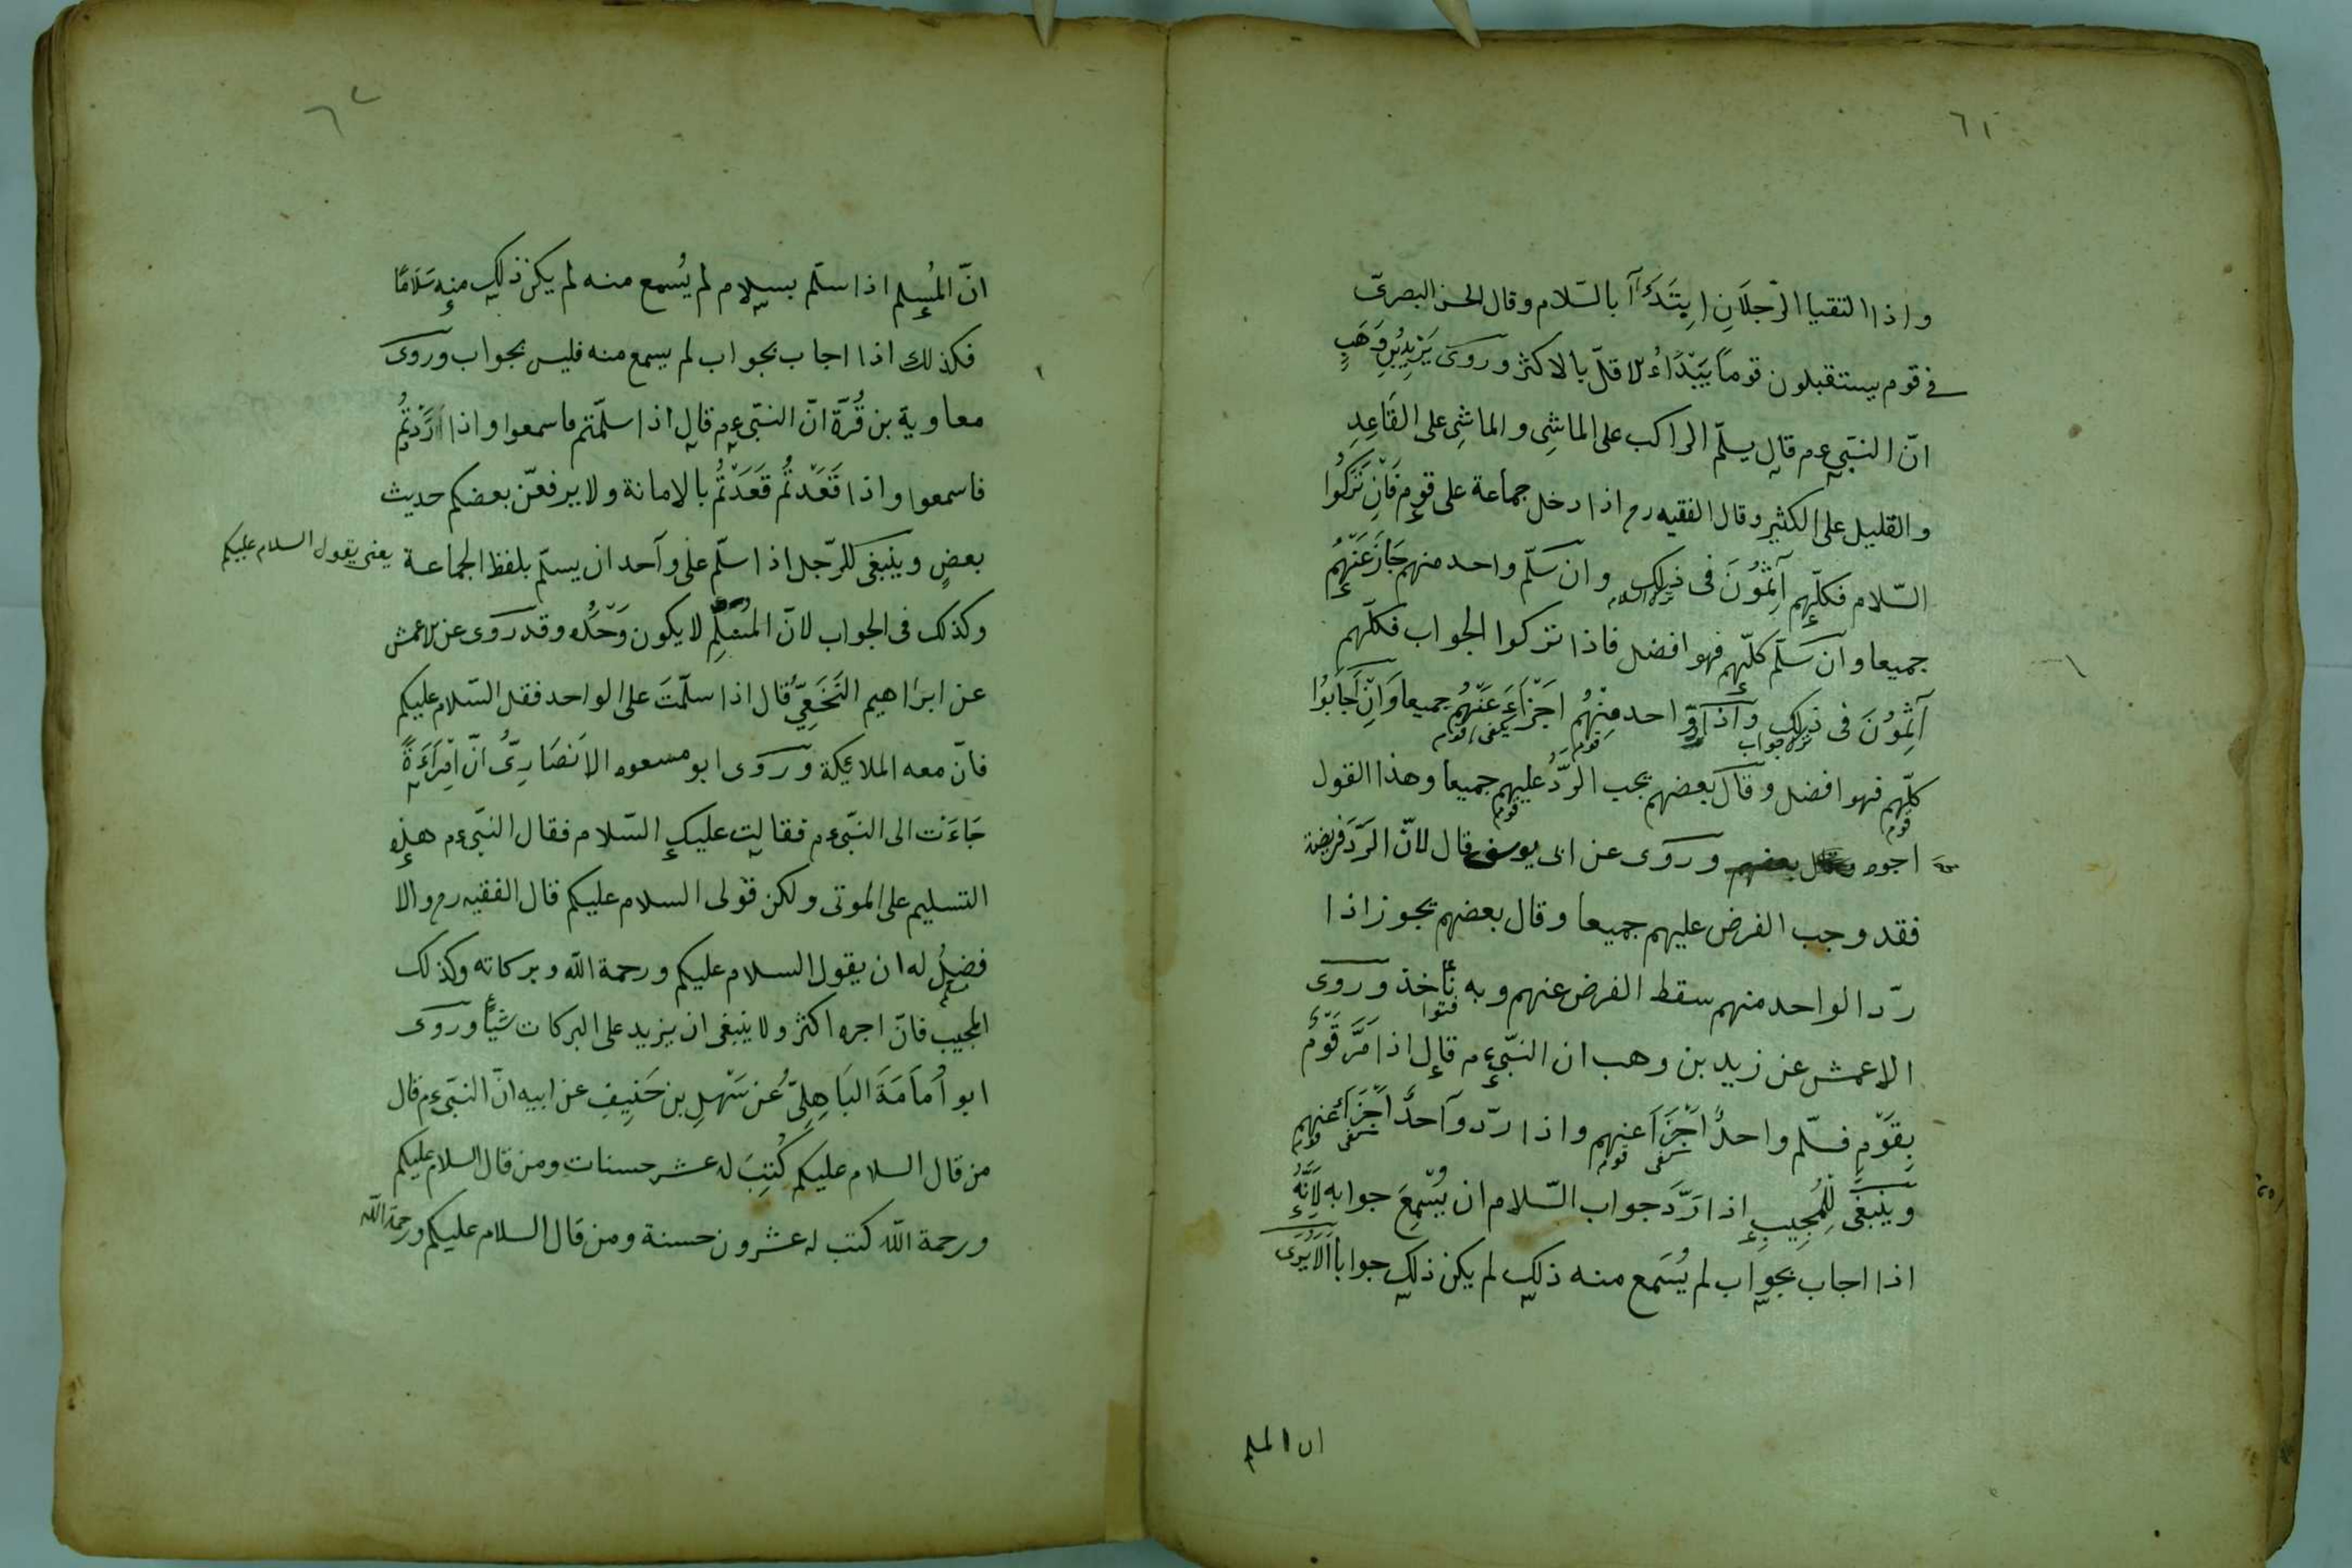 ٦١
واذا التقيا الرّجلَانِ ابتَدَأَا بالسّلام وقال الحسن البصرىّ
فى قوم يستقبلون قومًا يَبْدَاُ الاقلّ بالاكثر وروى يَزِيدُ بنِ وَهَبٍ
انّ النبّى عم قال يسلّم الراكب على الماشِى والماشِى على القَاعِدِ
والقليل على الكثير وقال الفقيه رح اذا دخل جماعة على قوم فَانِ تَرَكُوا
السّلام فكلّهم آثِمُونَ فى ذلك وان سَلّم واحد منهم جَازَ عَنْهُم
جميعا وان سَلّم كلّهم فهو افضل فاذا تركوا الجواب فكلّهم
آثِمُونَ فى ذلك واذا ردّ احد مِنْهُم اَجْزَاَءَ عَنْهُم جميعا وَاِنْ اَجَابُوا
ترك جواب
قوم
يكفى قوم
كلّهم فهو افضل وقال بعضهم يجب الرّدُّ عليهم جميعا وهذا القول
قوم
قوم
اجوه وقال بعضهم وروى عن ابى يوسف قال لانّ الرَّدَ فريضة
فقد وجب الفرض عليهم جميعا وقال بعضهم يجوز اذا
ردّ الواحد منهم سقط الفرض عنهم وبه نأخذ وروى
فتوا
الاعمش عن زيد بن وهب ان النبّى عم قال اذا مَرَّ قَوْمٌ
بِقَوْمٍ فسلّم واحدٌ اَجْزَاَ عنهم واذا ردّ واحدٌ اَجْزَأَ عنهم
يكفى قوم
يكفى قوم
وينبَغَى لِلْمُجِيبِ اذا رَدَّ جواب السّلام ان يُسْمِعَ جوابه لِاَنَّهُ
اذا اجاب بجواب لم يُسْمَع منه ذلك لم يكن ذلك جوابا اَلَا يُرَى
ان المسلم
٦٢
انّ المُسلِم اذا سلّم بسلام لم يُسمع منه لم يكن ذلك منه سَلَامًا
فكذلك اذا اجاب بجواب لم يسمع منه فليس بجواب وروى
معاوية بن قُرَّة انّ النبّى عم قال اذا سلّمتم فاسمعوا واذا رَدَدْتُم
فاسمعوا واذا قَعَدْتُم قَعَدْتُم بالامانة ولا يرفعنّ بعضكم حديث
بعضٍ وينبغى للرّجل اذا سلّم على واحد ان يسلّم بلفظ الجماعة
يعنى يقول السلام عليكم
وكذلك فى الجواب لانّ المُسلِم لا يكون وَحْدَه وقد روى عن الاعمش
عن ابرَاهيم النَخَعِىّ قال اذا سلّمتَ على الواحد فقل السّلام عليكم
فانّ معه الملائكة وروى ابو مسعود الاَنصَارِىّ انّ اِمْرَاَءَةً
جَاءَت الى النبّى عم فقالت عليك السّلام فقال النبّى عم هذه
التسليم على الموتى ولكن قوْلى السلام عليكم قال الفقيه رح والا
فضلُ له ان يقول السلام عليكم ورحمة اللّه وبركاته وكذلك
المجيب فانّ اجره اكثر ولا ينبغى ان يزيد على البركات شيأً وروى
ابو اُمَامَةَ البَاهِلِىّ عن سَهْلِ بن حَنِيفِ عن ابيه انّ النبّى عم قال
من قال السلام عليكم كُتِبَ له عشر حسنات ومن قال السلام عليكم
ورحمة اللّه كتب له عشرون حسنة ومن قال السلام عليكم ورحمة اللّه